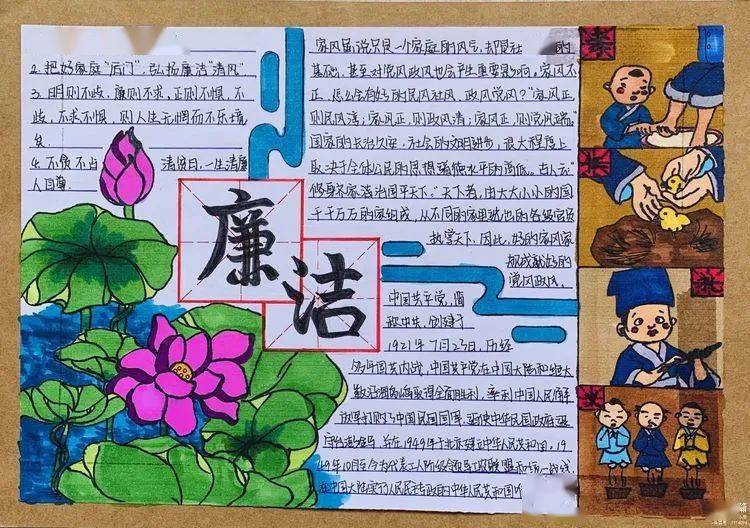 2. 把好家庭"后门",弘扬廉洁"清风"
3. 明则不 廉则不求,正则不惧,不
不求不惧,则人生无惆而不乐境
4. 不贪不 清贫日,一生清廉
人自尊
廉洁
家风虽说只是一个家庭的风气,却是社 的
基础,甚至对党风政风也会产生重要影响。家风不
正,怎么会有好的民风社风,政风党风?"家风正,
则民风淳;家风正,则政风清;家风正,则党风端"
国家的长治久安,社会的文明进步,很大程度上
取决于全体公民的思想道德水平的高低。古人云"
修身齐家治国平天下。"天下者,由大大小小的国
千千万万的家组成,从不同的家里走出的各级官员
执掌天下,因此,好的家风家
成就好的
党风政风。
中国共产党,简
称中共,创建于
1921年7月23日,历经
年国共内战,中国共产党在中国大陆和绝大
取得全面胜利,率利中国人民解
放军打败了中国民国国军,迫使中华民国政府
于1949年于北京建立中华人民共和国。19
49年10月至今为代表工人阶级领导工农联盟和统一战线
在中国大陆实行人民民主专政的中华人民共和国